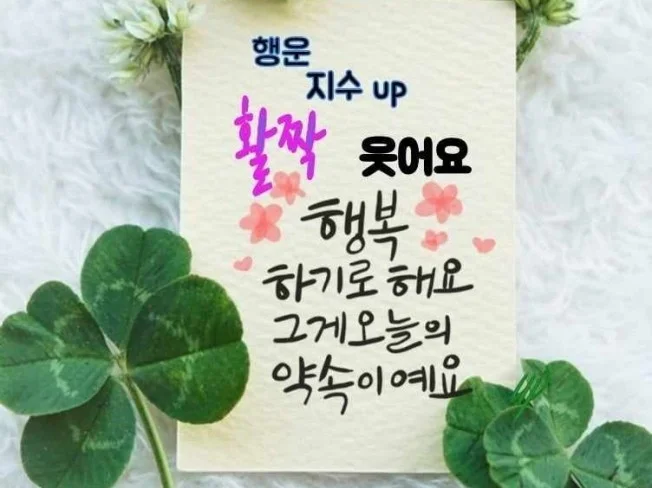 행운
지수 up
활짝 웃어요
행복
하기로 해요
그게오늘의
약속이예요